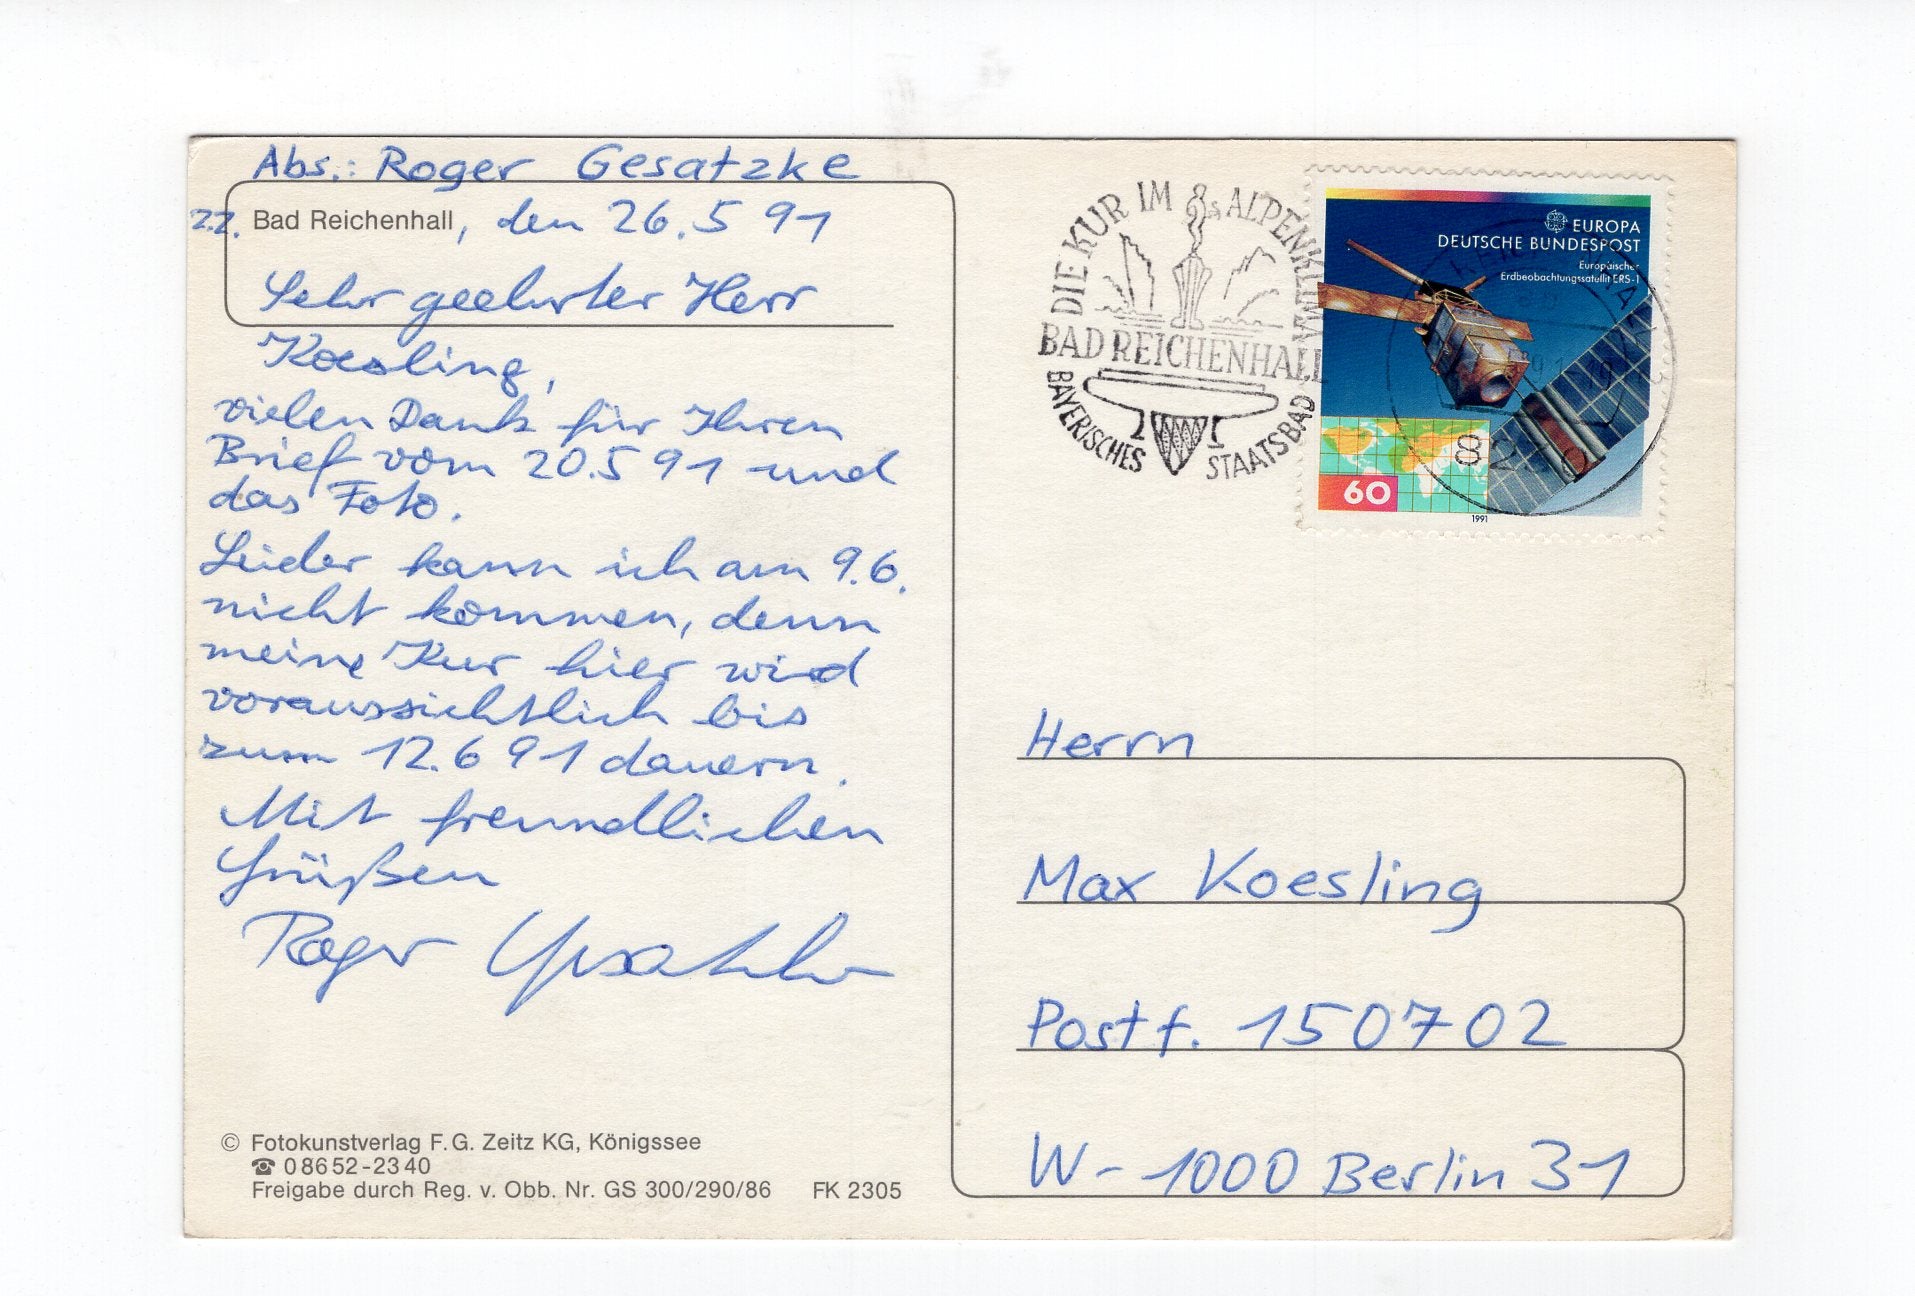 Abs.: Roger Gesatzke
z.Z. Bad Reichenhall, den 26.5 91
Sehr geehrter Herr
Koesling,
vielen Dank für Ihren
Brief vom 20.5 91 und
das Foto.
Leider kann ich am 9.6.
nicht kommen, denn
meine Kur hier wird
voraussichtlich bis
zum 12.6 91 dauern.
Mit freundlichen
Grüßen
Roger Gesatzke
© Fotokunstverlag F. G. Zeitz KG, Königssee
☎ 0 86 52 - 23 40
Freigabe durch Reg. v. Obb. Nr. GS 300/290/86 FK 2305
DIE KUR IM ALPENKLIMA
BAD REICHENHALL
BAYERISCHES STAATSBAD
EUROPA
DEUTSCHE BUNDESPOST
Europäischer
Erdbeobachtungssatellit ERS-1
60
1991
Herrn
Max Koesling
Postf. 150702
W-1000 Berlin 31